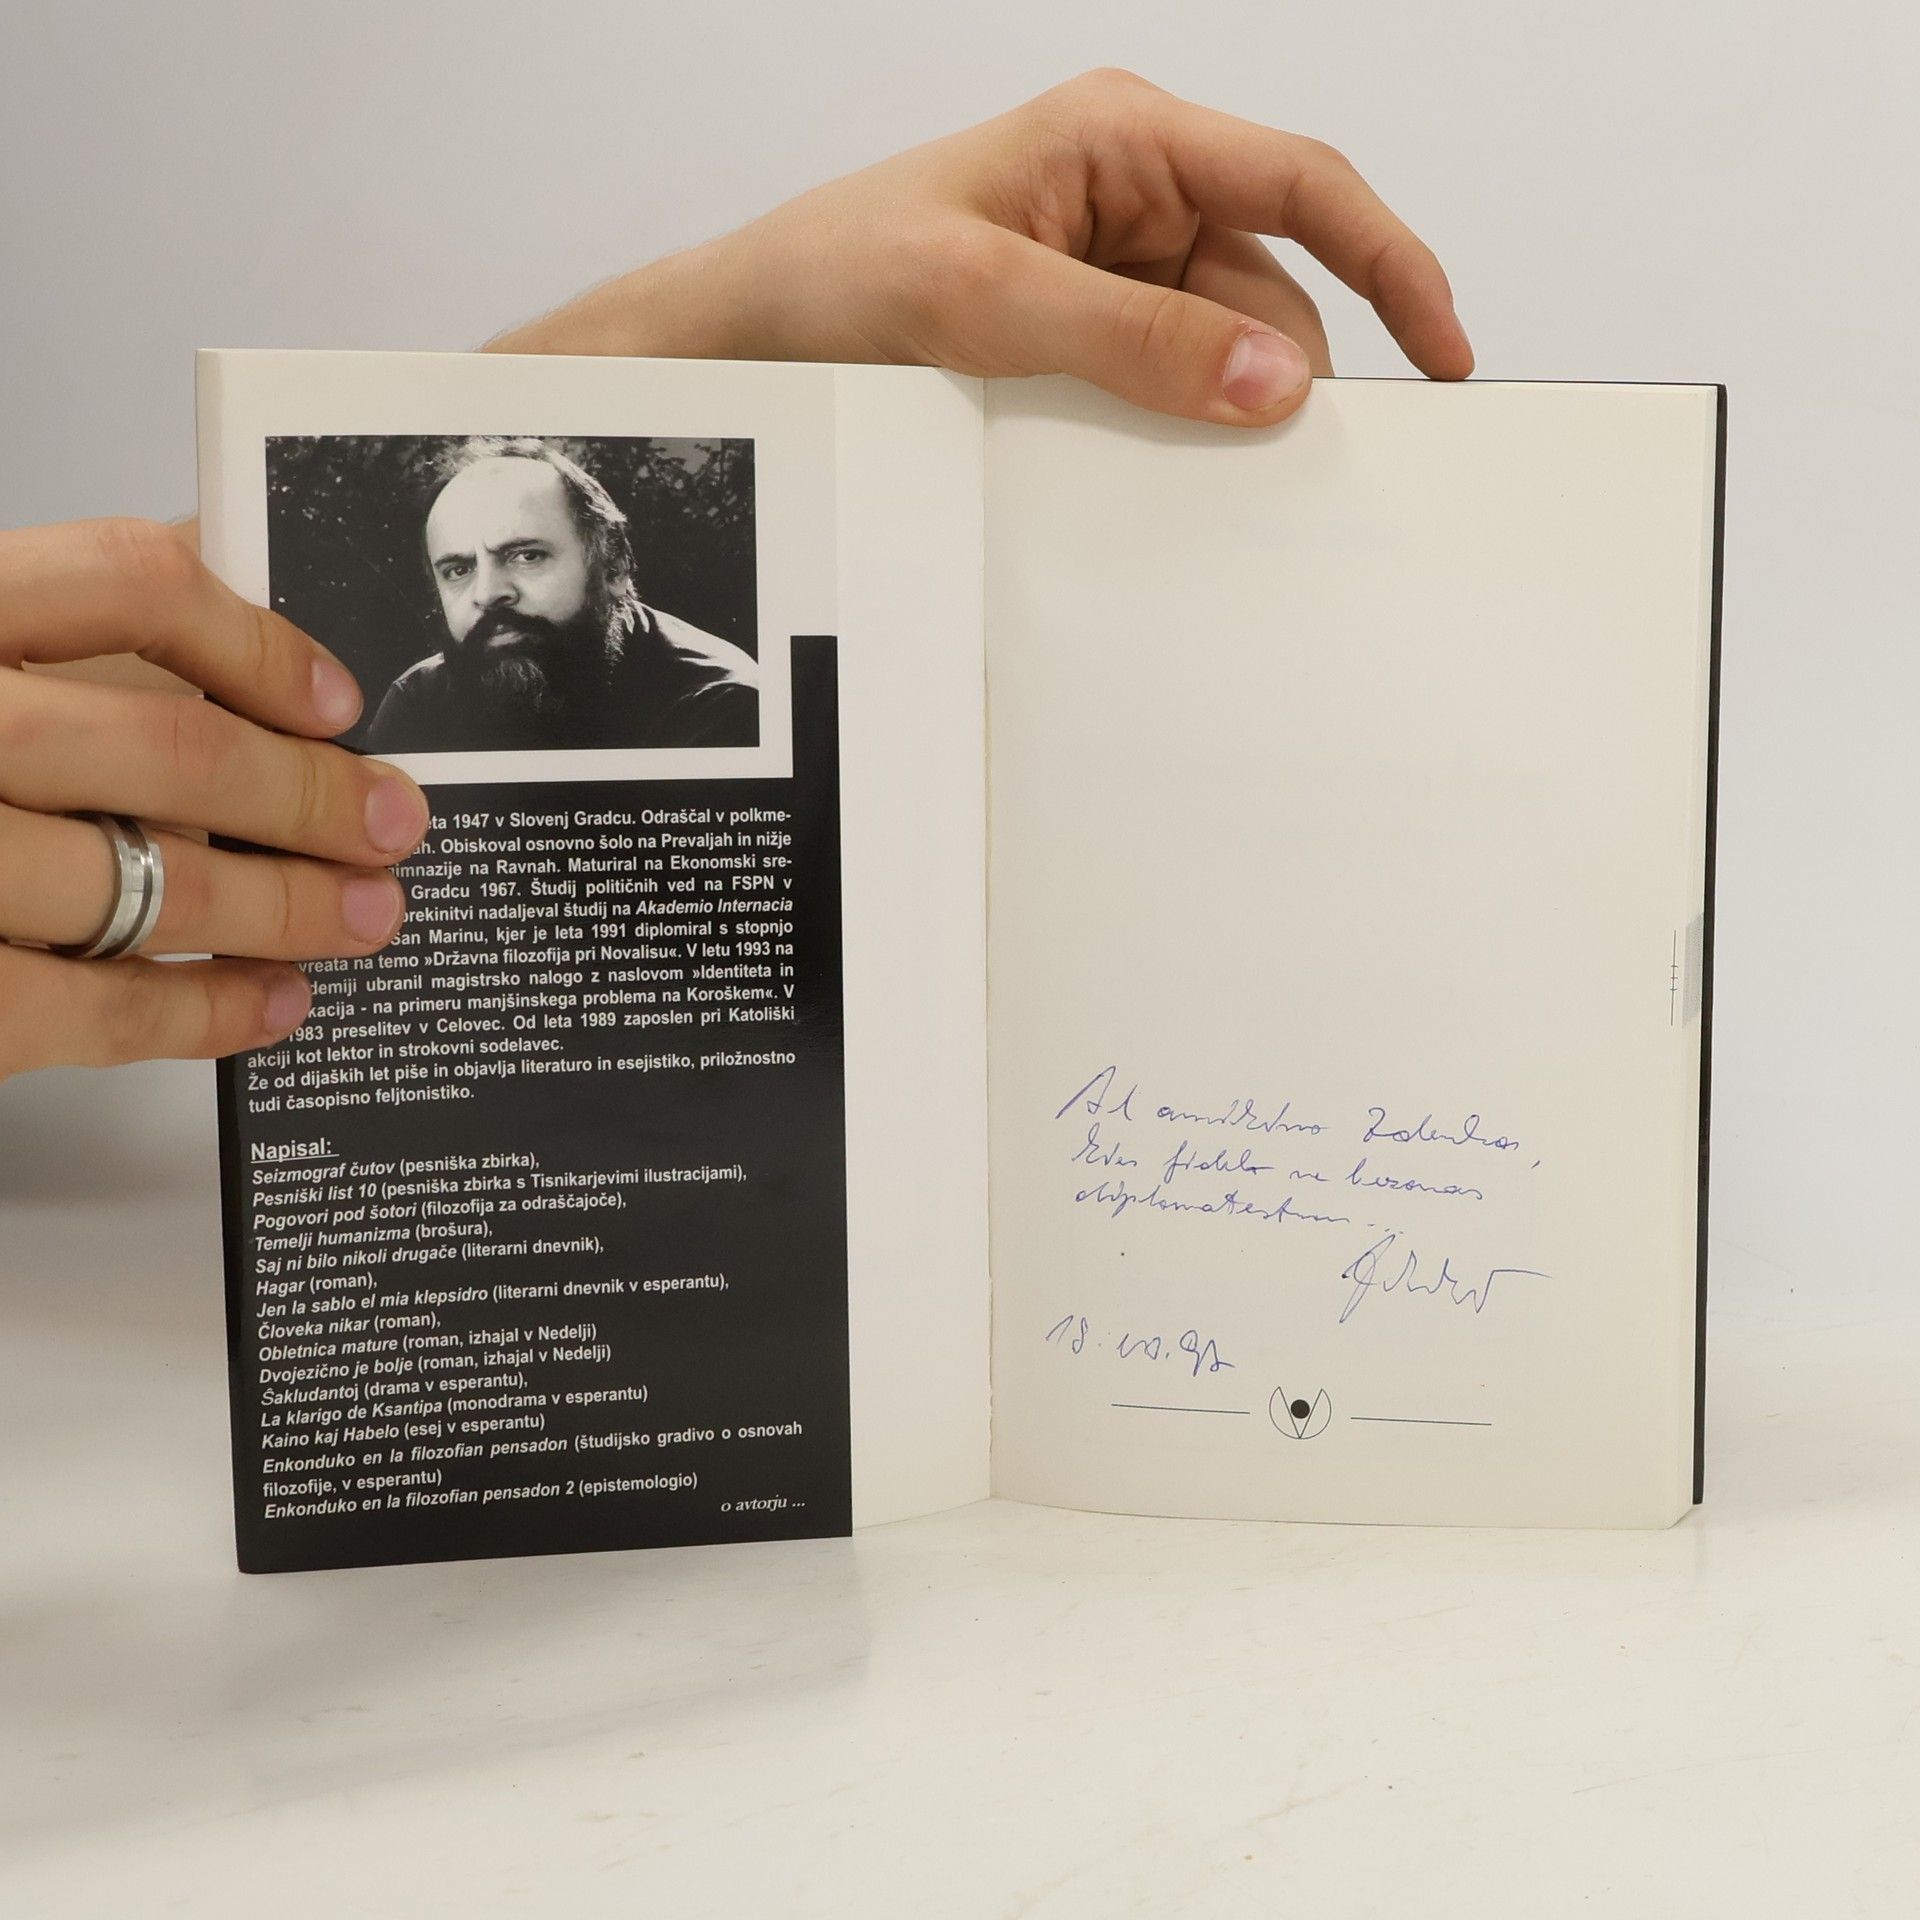 eta 1947 v Slovenj Gradcu. Odraščal v polkme-
ah. Obiskoval osnovno šolo na Prevaljah in nižje
gimnazije na Ravnah. Maturiral na Ekonomski sre-
Gradcu 1967. Študij političnih ved na FSPN v
prekinitvi nadaljeval študij na Akademio Internacia
San Marinu, kjer je leta 1991 diplomiral s stopnjo
vreata na temo »Državna filozofija pri Novalisu«. V letu 1993 na
demiji ubranil magistrsko nalogo z naslovom »Identiteta in
kacija - na primeru manjšinskega problema na Koroškem«. V
1983 preselitev v Celovec. Od leta 1989 zaposlen pri Katoliški
akciji kot lektor in strokovni sodelavec.
Že od dijaških let piše in objavlja literaturo in esejistiko, priložnostno
tudi časopisno feljtonistiko.
Napisal:
Seizmograf čutov (pesniška zbirka),
Pesniški list 10 (pesniška zbirka s Tisnikarjevimi ilustracijami),
Pogovori pod šotori (filozofija za odraščajoče),
Temelji humanizma (brošura),
Saj ni bilo nikoli drugače (literarni dnevnik),
Hagar (roman),
Jen la sablo el mia klepsidro (literarni dnevnik v esperantu),
Človeka nikar (roman),
Obletnica mature (roman, izhajal v Nedelji)
Dvojezično je bolje (roman, izhajal v Nedelji)
Ŝakludantoj (drama v esperantu),
La klarigo de Ksantipa (monodrama v esperantu)
Kaino kaj Habelo (esej v esperantu)
Enkonduko en la filozofian pensadon (študijsko gradivo o osnovah
filozofije, v esperantu)
Enkonduko en la filozofian pensadon 2 (epistemologio)
o avtorju ...
Al Zdenka,
ne bezonas
18.